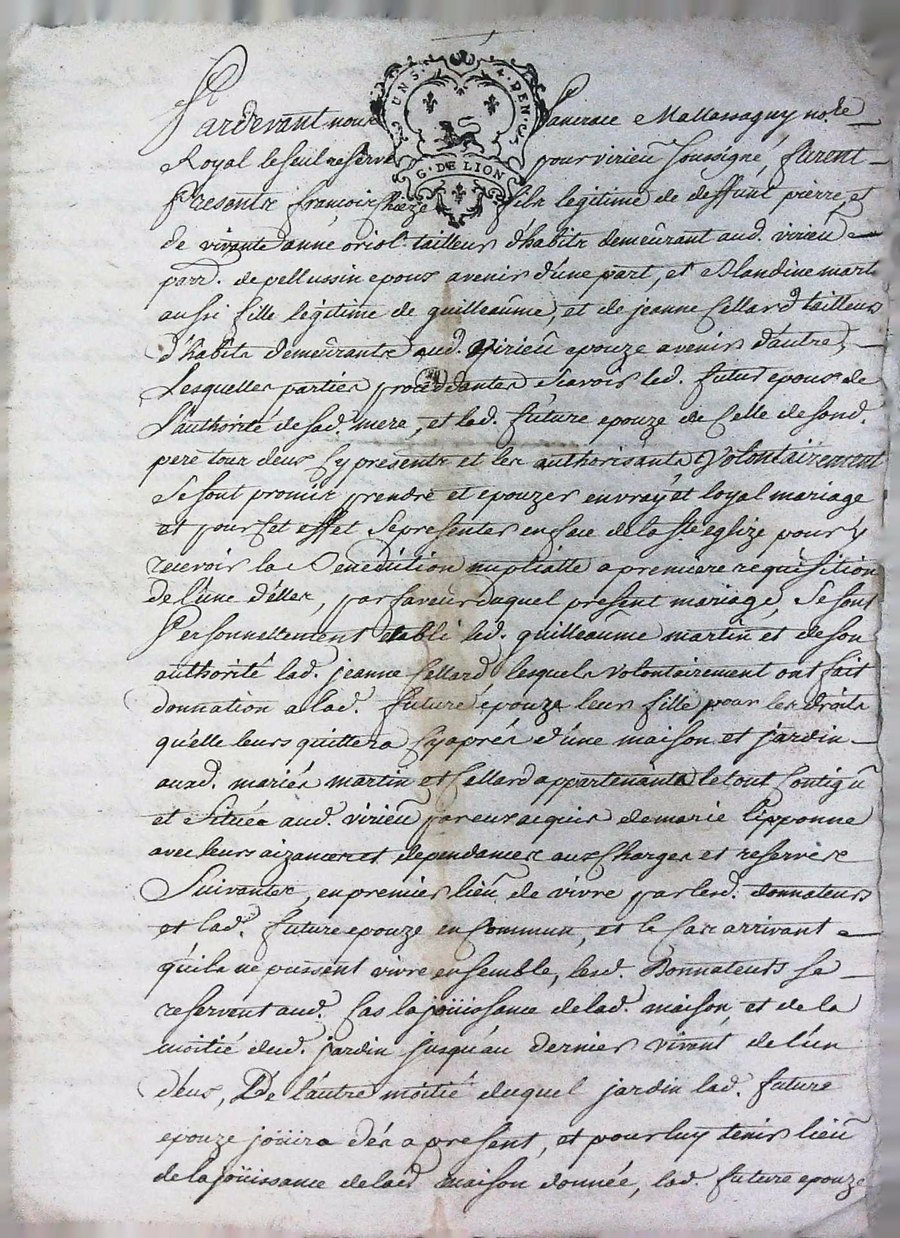 UN S. 4. DEN.
G. DE LION
Pardevant nous Pancrace Mallassagny no.re
Royal le seul reservé pour virieu soussigné, furent
Presents françois chieze fils légitime de deffunt pierre, et
de vivante anne oriol tailleur d'habits demeurant aud. virieu
parr. de pellussin epoux avenir d'une part, et Blandine martin
aussi fille légitime de guilleaume, et de jeanne Cellard tailleur
d'habits demeurants aud. Virieu epouze avenir d'autre,
Lesquelles parties procédantes Scavoir led. futur epoux de
l'authorité de sad. mere, et lad. future epouze de Celle de sond.
pere tous deux Cy presents et les authorisants Volontairement
Se sont promis prendre et epouzer en vray et loyal mariage
et pour Cet effet Se presenter en face de la Ste eglize pour y
recevoir la Benediction nuptialle a premiere requisition
de l'une d'elles, par faveur duquel present mariage, Se sont
Personnellement etabli led. guilleaume martin et de son
authorité lad. jeanne Cellard lesquels volontairement ont fait
donnation a lad. future epouze leur fille pour les droits
qu'elle leurs quittera Cy aprés d'une maison et jardin
auxd. mariés martin et Cellard appartenants le tout Contigu
et Situés aud. virieu par eux acquis de marie Lipponne
avec leurs aizances et dependances aux Charges et reserves
Suivantes, en premier lieu de vivre par lesd. donnateurs
et lad. future epouze en Commun, et le Cas arrivant
qu'ils ne pussent vivre ensemble, lesd. Donnateurs se
reservent aud. Cas la joüissance de lad. maison et de la
moitié dud. jardin jusqu'au dernier vivant de l'un
d'eux, De l'autre moitié duquel jardin lad. future
epouze joüira dés a present, et pour luy tenir lieu
de la joüissance de lad. maison donnée, lad. future epouze